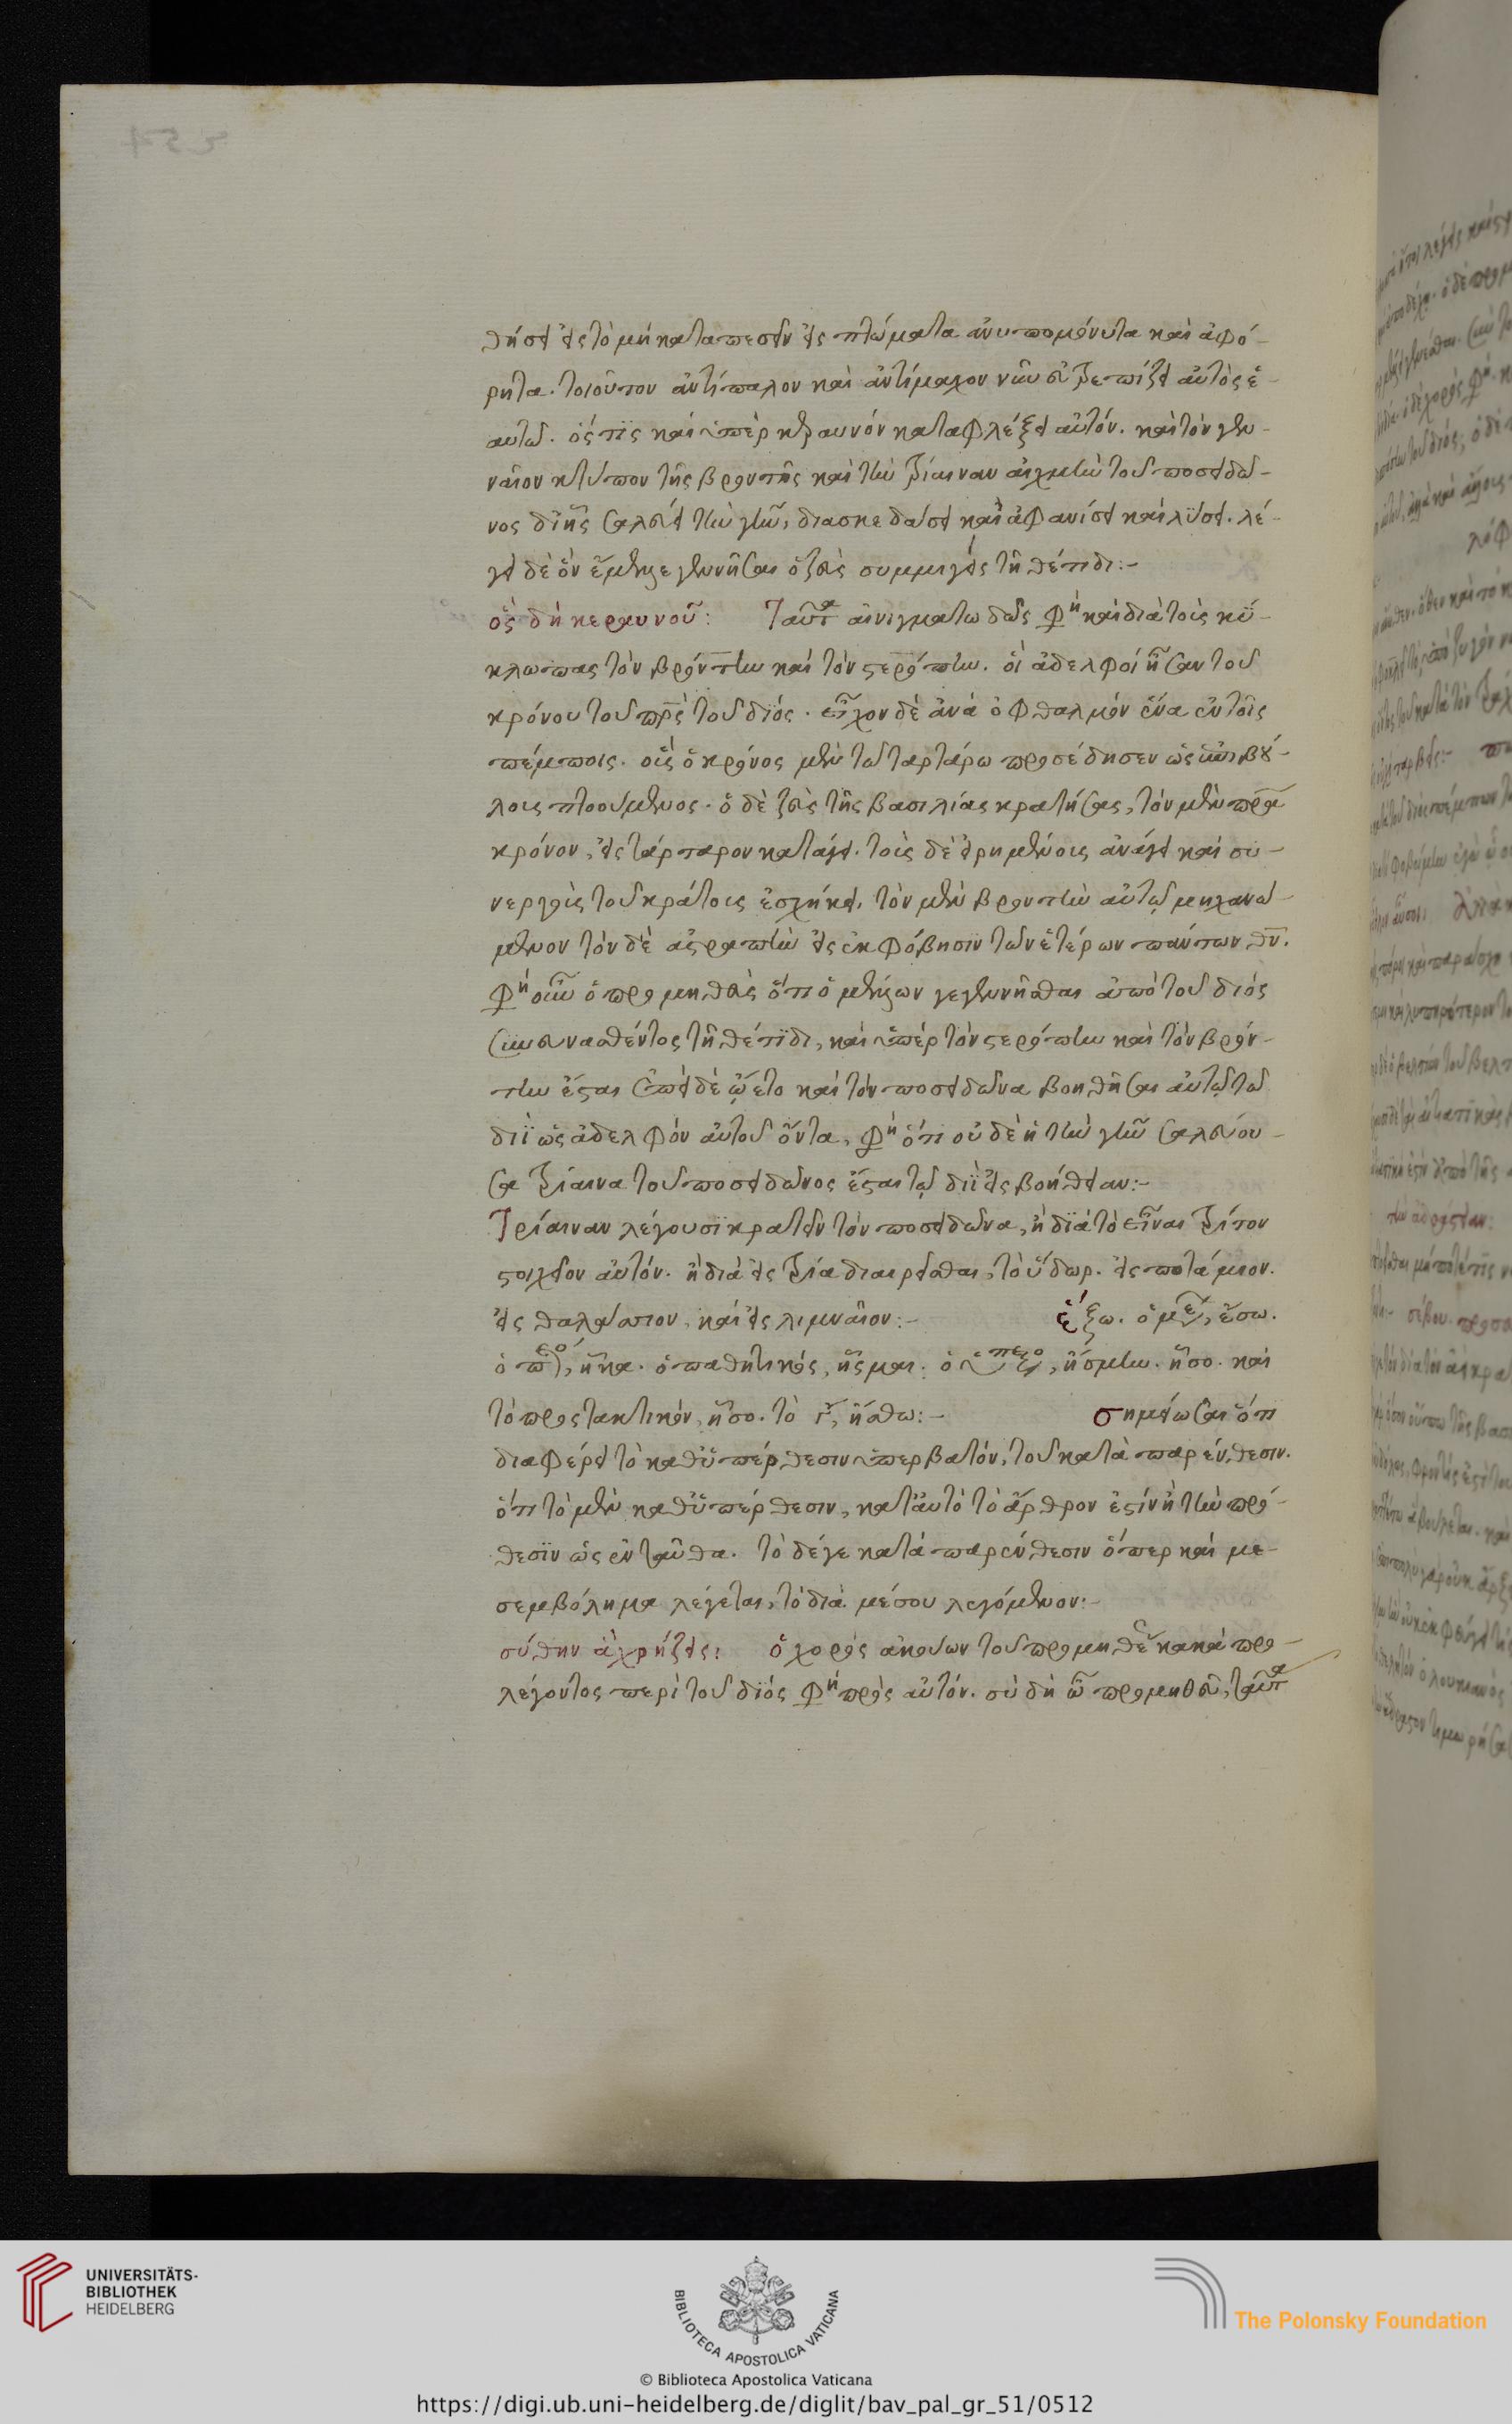 θήσει εἰς τὸ μὴ καταπεσεῖν εἰς πτώματα ἀνυπομόνητα καὶ ἀφό-
ρητα. τοιοῦτον ἀντίπαλον καὶ ἀντίμαχον νῦν εὐτρεπίζει αὐτὸς ἑ-
αυτῷ. ὅς τις καὶ ὑπὲρ κεραυνὸν καταφλέξει αὐτόν. καὶ τὸν γεν-
ναῖον κτύπον τῆς βροντῆς καὶ τὴν τρίαιναν αἰχμὴν τοῦ ποσειδῶ-
νος δι' ἧς σαλεύει τὴν γῆν, διασκεδάσει καὶ ἀφανίσει καὶ λύσει. λέ-
γει δὲ ὃν ἔμελλε γεννῆσαι ὁ ζεὺς συμμιγεὶς τῇ θέτιδι:-
ὃς δὴ κεραυνοῦ: Ταῦτα αἰνιγματωδῶς φη καὶ διὰ τοὺς κύ-
κλωπας τὸν βρόντην καὶ τὸν στερόπην. οἳ ἀδελφοὶ ἦσαν τοῦ
κρόνου τοῦ πρς τοῦ διός. εἶχον δὲ ἀνὰ ὀφθαλμὸν ἕνα ἐν τοῖς
μετώποις. οὓς ὁ κρόνος μὲν τῷ ταρτάρω προσέδησεν ὡς ἐπιβού-
λους πτοούμενος. ὁ δὲ ζεὺς τῆς βασιλίας κρατήσας, τὸν μὲν πρα
κρόνον, εἰς τάρταρον κατάγει. τοὺς δὲ εἰρημένους ἀνάγει καὶ συ-
νεργοὺς τοῦ κράτους ἐσχήκει. τὸν μὲν βροντὴν αὐτῷ μηχανώ-
μενον τὸν δὲ ἀστραπὴν εἰς ἐκφόβησιν τῶν ἑτέρων πάντων θν.
φη οὖν ὁ προμηθεὺς ὅτι ὁ μέλλων γεγεννῆσθαι ἀπὸ τοῦ διός
συνευνασθέντος τῇ θέτιδι, καὶ ὑπὲρ τὸν στερόπην καὶ τὸν βρόν-
την ἔσται ἐπεὶ δὲ ᾤετο καὶ τὸν ποσειδῶνα βοηθῆσαι αὐτῷ τῷ
διῒ ὡς ἀδελφὸν αὐτοῦ ὄντα, φη ὅτι οὐδὲ ἡ τὴν γῆν σαλεύου-
σα τρίαινα τοῦ ποσειδῶνος ἔσται τῷ διῒ εἰς βοήθειαν:-
Τρίαιναν λέγουσι κρατεῖν τὸν ποσειδῶνα, ἢ διὰ τὸ εἶναι τρίτον
στοιχεῖον αὐτόν. ἢ διὰ εἰς τρία διαιρεῖσθαι, τὸ ὕδωρ. εἰς ποτάμιον.
εἰς θαλάσσιον, καὶ εἰς λιμναῖον:- ἕξω. ὁ με, ἔσω.
ὁ π, ἧκα. ὁ παθητικός, ἧσμαι. ὁ ὑπερ, ἥσμην. ἧσο. καὶ
τὸ προστακτικόν, ἧσο. τὸ γʹ, ἤσθω:- σημείωσαι ὅτι
διαφέρει τὸ καθ' ὑπέρθεσιν ὑπερβατόν, τοῦ κατὰ παρένθεσιν.
ὅτι τὸ μὲν καθ' ὑπέρθεσιν, κατ' αὐτὸ τὸ ἄρθρον ἐστὶν ἢ τὴν πρό-
θεσιν ὡς ἐνταῦθα. τὸ δέ γε κατὰ παρένθεσιν ὅπερ καὶ με-
σεμβόλημα λέγεται, τὸ διὰ μέσου λεγόμενον:-
σύ θην ἃ χρήζεις: ὁ χορὸς ἀκούων τοῦ προμηθέως κακὰ προ-
λέγοντος περὶ τοῦ διός φη πρὸς αὐτόν. σὺ δὴ ὦ προμηθεῦ, ταῦτα
UNIVERSITÄTS-
BIBLIOTHEK
HEIDELBERG
BIBLIOTECA APOSTOLICA VATICANA
The Polonsky Foundation
© Biblioteca Apostolica Vaticana
https://digi.ub.uni-heidelberg.de/diglit/bav_pal_gr_51/0512